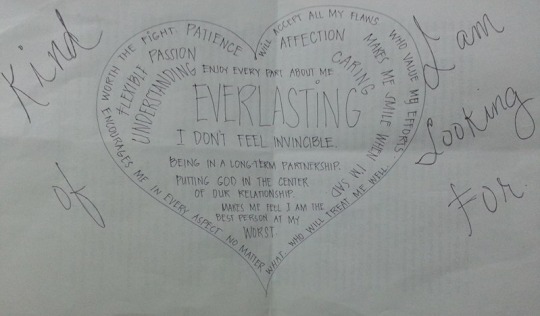 Kind
of
I am
Looking
For.
WORTH THE FIGHT. PATIENCE
WILL ACCEPT ALL MY FLAWS. WHO VALUE MY EFFORTS
PASSION
AFFECTION
FLEXIBLE
UNDERSTANDING
CARING
MAKES ME SMILE WHEN I'M SAD
ENJOY EVERY PART ABOUT ME
EVERLASTING
I DON'T FEEL INVINCIBLE.
BEING IN A LONG-TERM PARTNERSHIP.
PUTTING GOD IN THE CENTER
OF OUR RELATIONSHIP.
MAKES ME FEEL I AM THE
BEST PERSON AT MY
WORST.
ENCOURAGES ME IN EVERY ASPECT NO MATTER WHAT.
WHO WILL TREAT ME WELL.